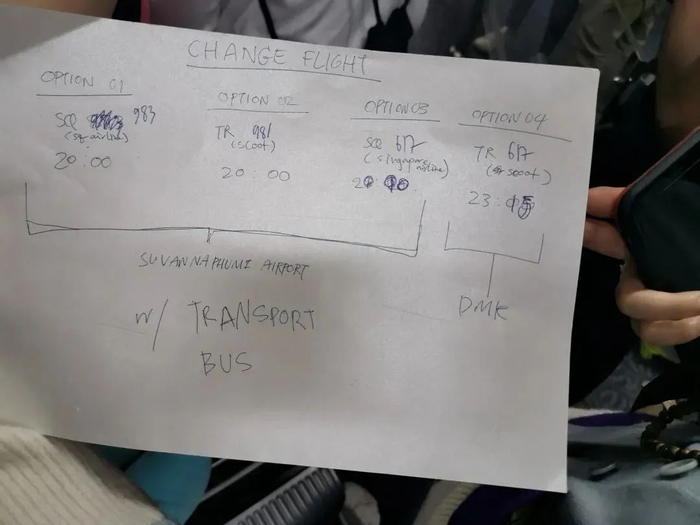 CHANGE FLIGHT
OPTION 01
SQ 983
(sq airline)
20:00
OPTION 02
TR 981
(scoot)
20:00
OPTION 03
SQ 617
(singapore airline)
OPTION 04
TR 617
scoot)
23:
SUVANNAPHUMI AIRPORT
DMK
w/ TRANSPORT
BUS